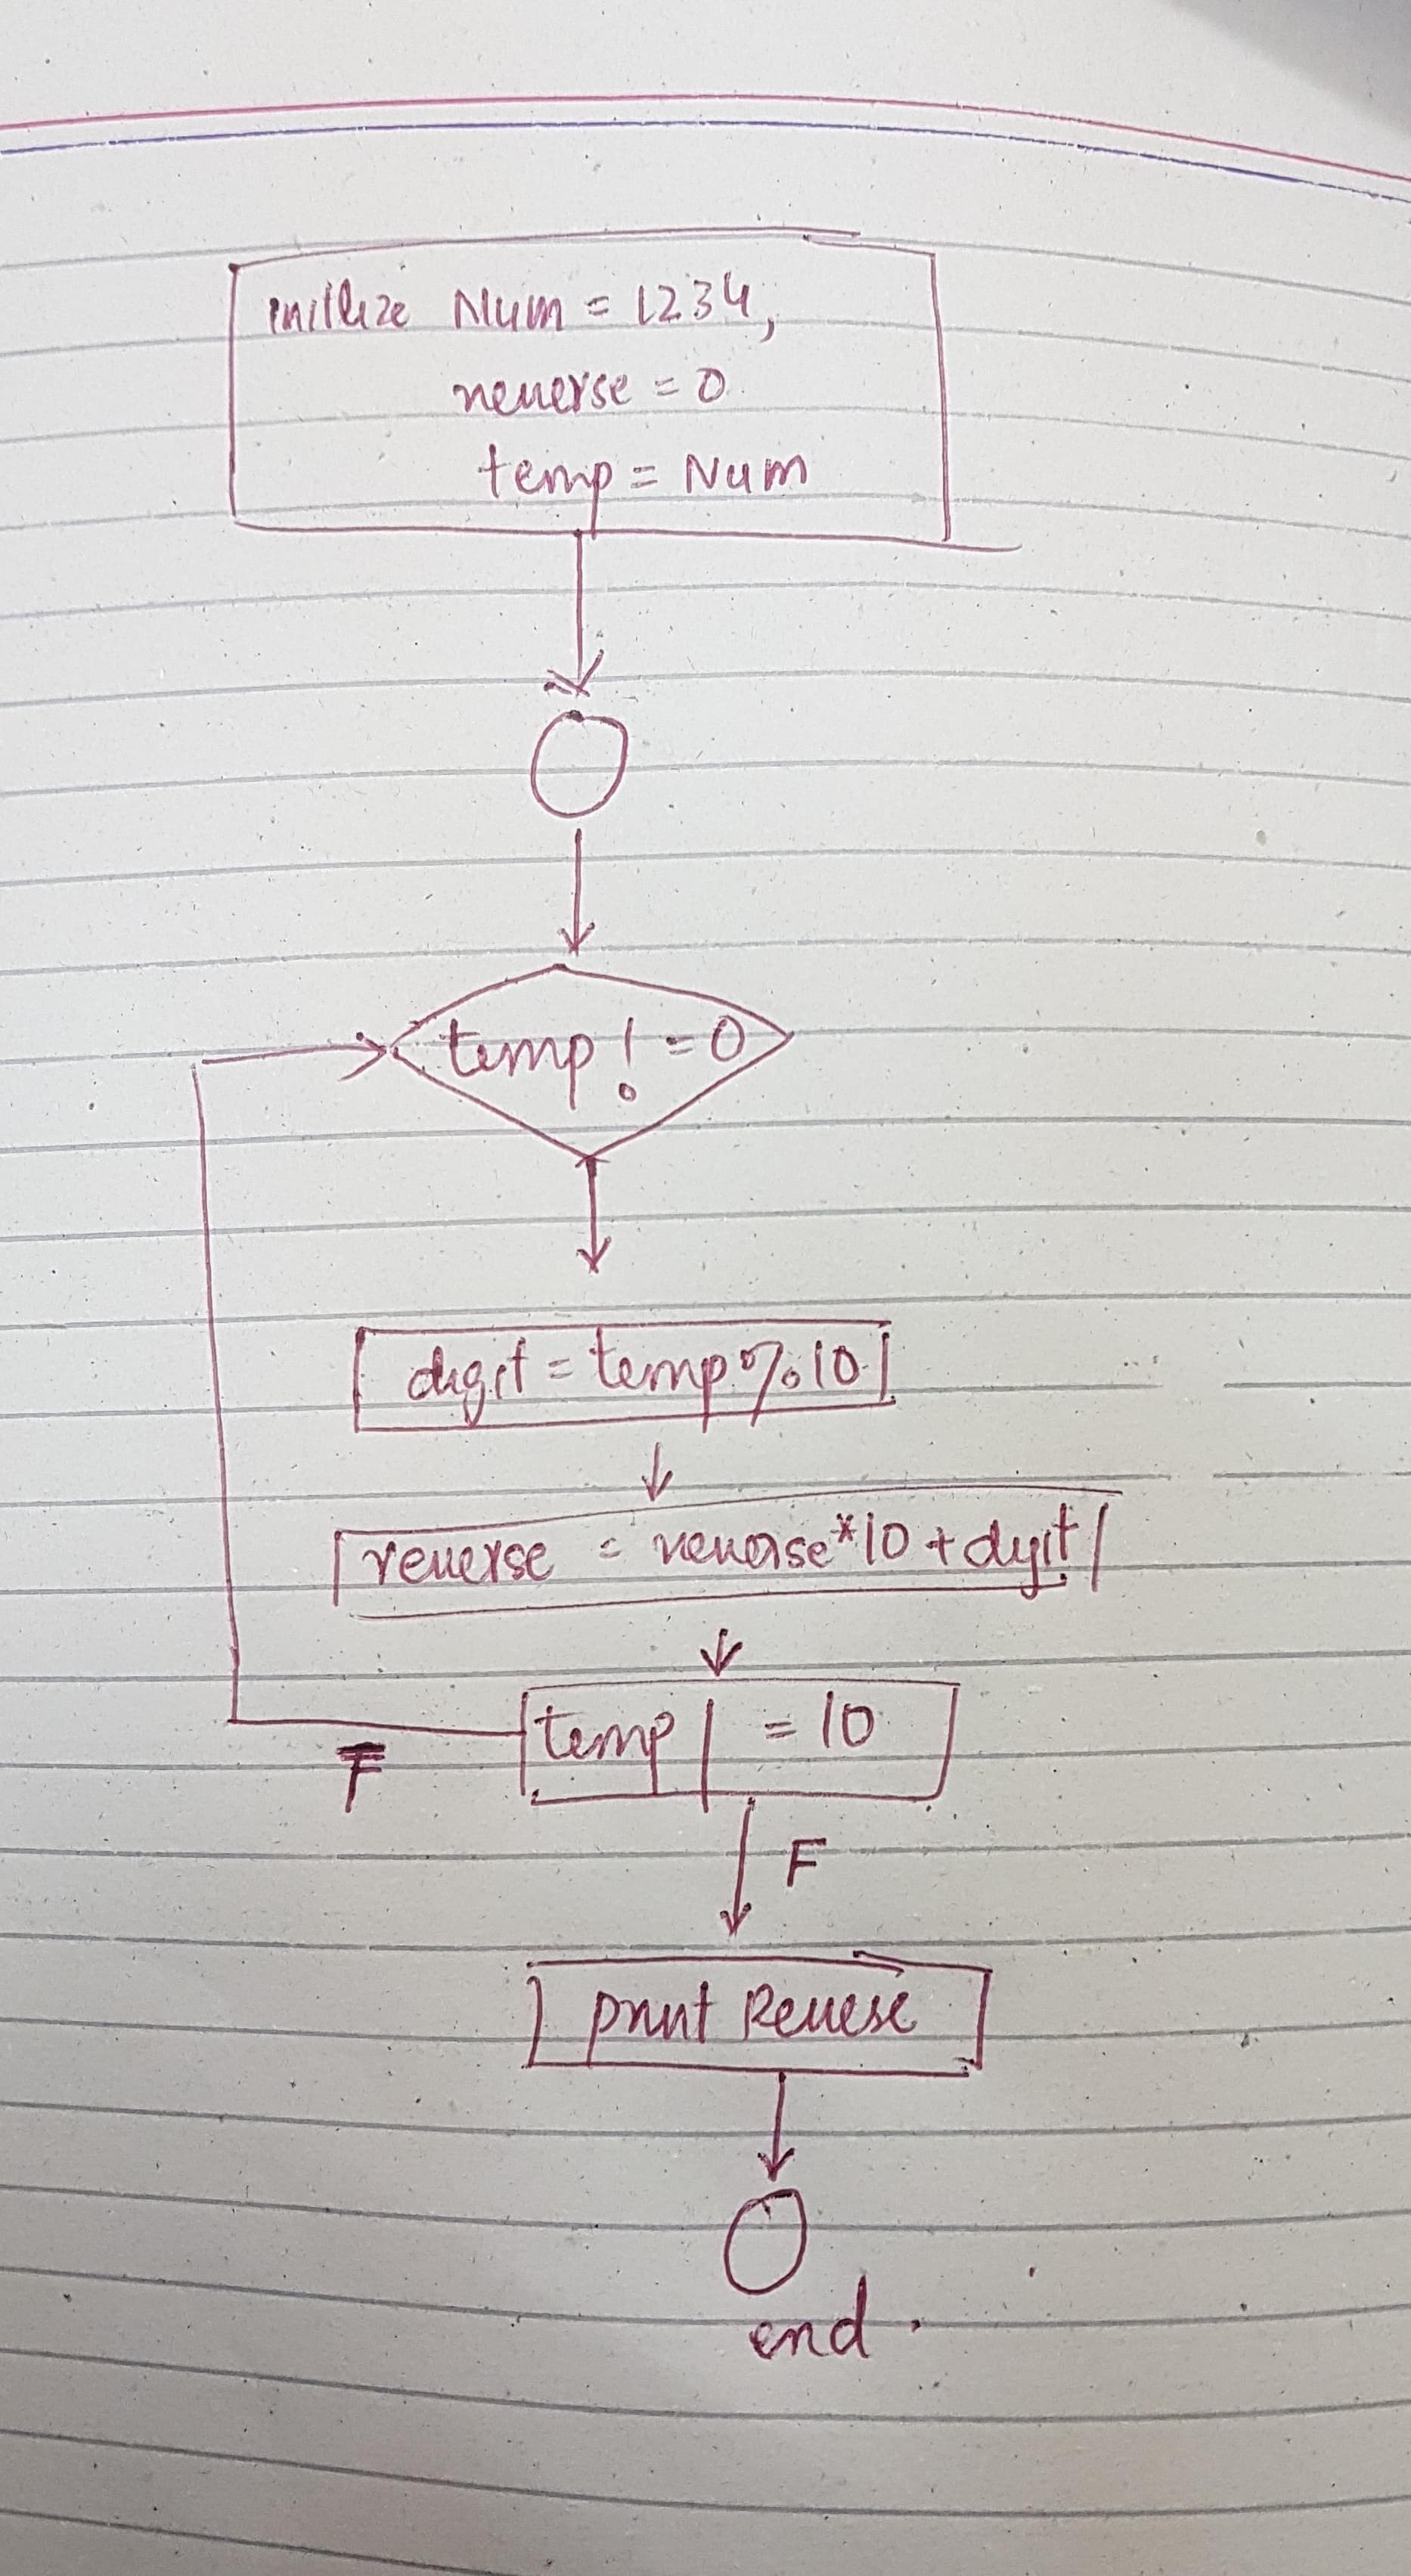 initlize Num = 1234,
reverse = 0
temp = Num
temp ! = 0
digit = temp % 10
reverse = reverse*10 + digit
temp / = 10
F
F
print Revese
end .